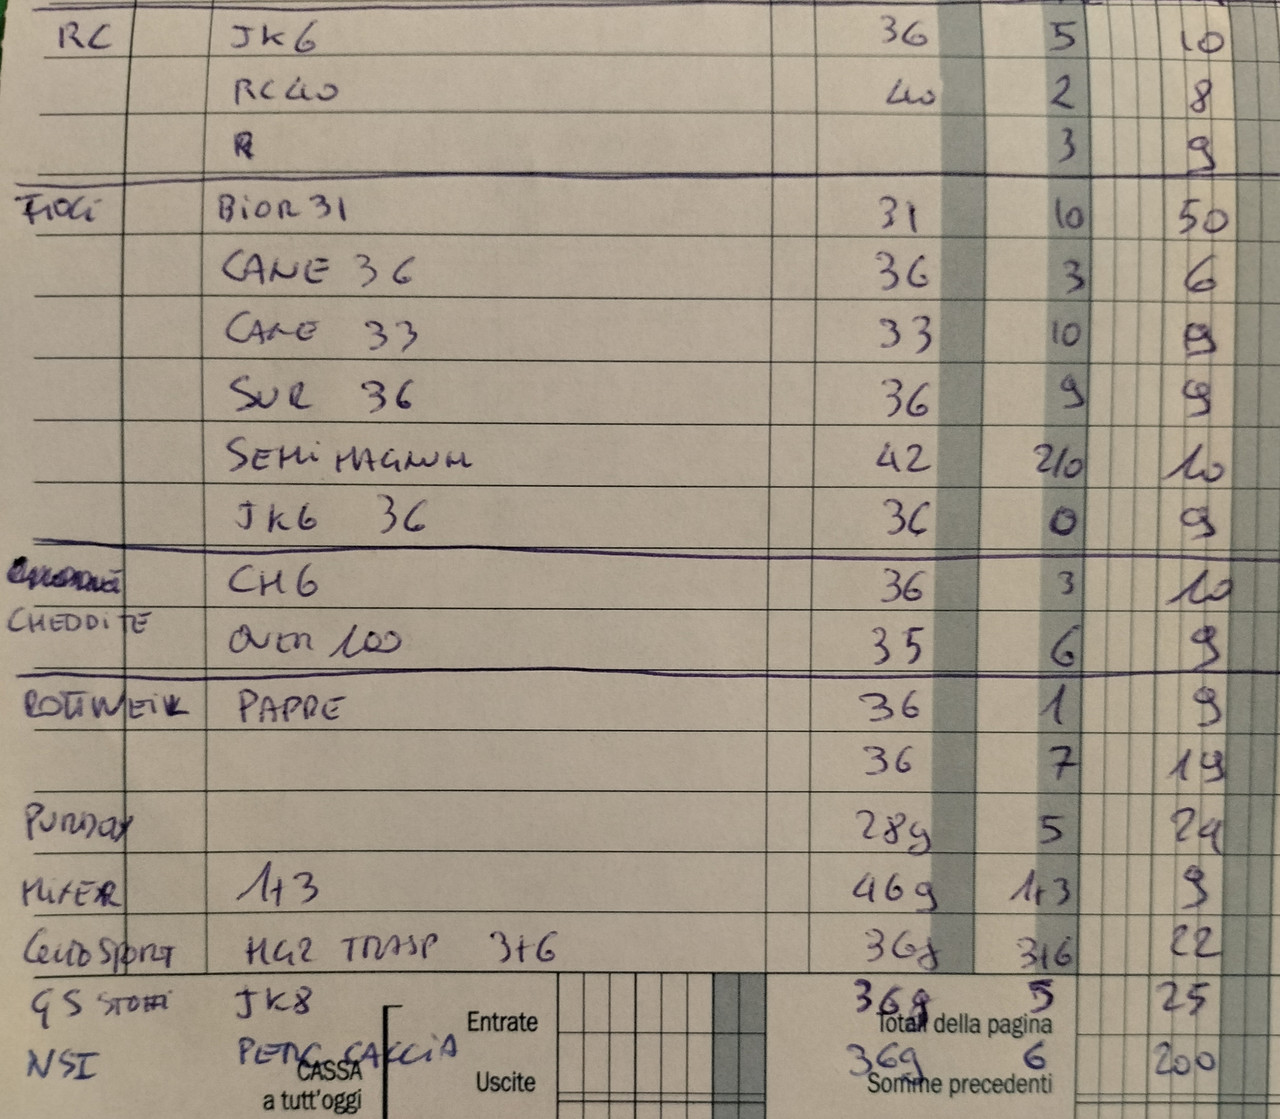 RC JK6 36 5 10
RC40 40 2 8
R 3 9
FIOCi BiOR 31 31 10 50
CANE 36 36 3 6
CANE 33 33 10 9
SUR 36 36 9 9
SEMi MAGNUM 42 2/0 10
JK6 36 36 0 9
CH6 36 3 10
CHEDDiTE OVER 100 35 6 9
PAPRE 36 1 9
36 7 19
28g 5
1+3 46g 1+3 9
TRASP 3+6 36g 3+6 22
GS JK8 36g 5 25
Entrate Totali della pagina
NSI CACCiA 36g 6 200
CASSA Uscite Somme precedenti
a tutt'oggi